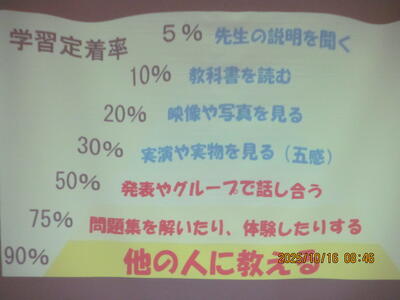 学習定着率
5% 先生の説明を聞く
10% 教科書を読む
20% 映像や写真を見る
30% 実演や実物を見る（五感）
50% 発表やグループで話し合う
75% 問題集を解いたり、体験したりする
90% 他の人に教える
2025/10/16 08:46